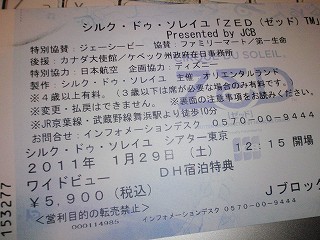 シルク・ドゥ・ソレイユ「ZED（ゼッド）TM」
Presented by JCB
特別協賛：ジェーシービー　協賛：ファミリーマート／第一生命
後援：カナダ大使館／ケベック州政府在日事務所
特別協力：日本航空　企画協力：ディズニー
製作：シルク・ドゥ・ソレイユ　主催　オリエンタルランド
※４歳以上有料。（３歳以下は席が必要な場合のみ有料です。
※変更・払戻はできません。　※裏面の注意事項をお読みください
※JR京葉線・武蔵野線舞浜駅より徒歩10分
お問合せ：インフォメーションデスク 0570-00-9444
シルク・ドゥ・ソレイユ　シアター東京
2011年　1月29日（土）　12:15 開場
ワイドビュー　DH宿泊特典
￥5,900（税込）　Jブロック
＜営利目的の転売禁止＞　インフォメーションデスク　0570-00-9444
000114985
153277